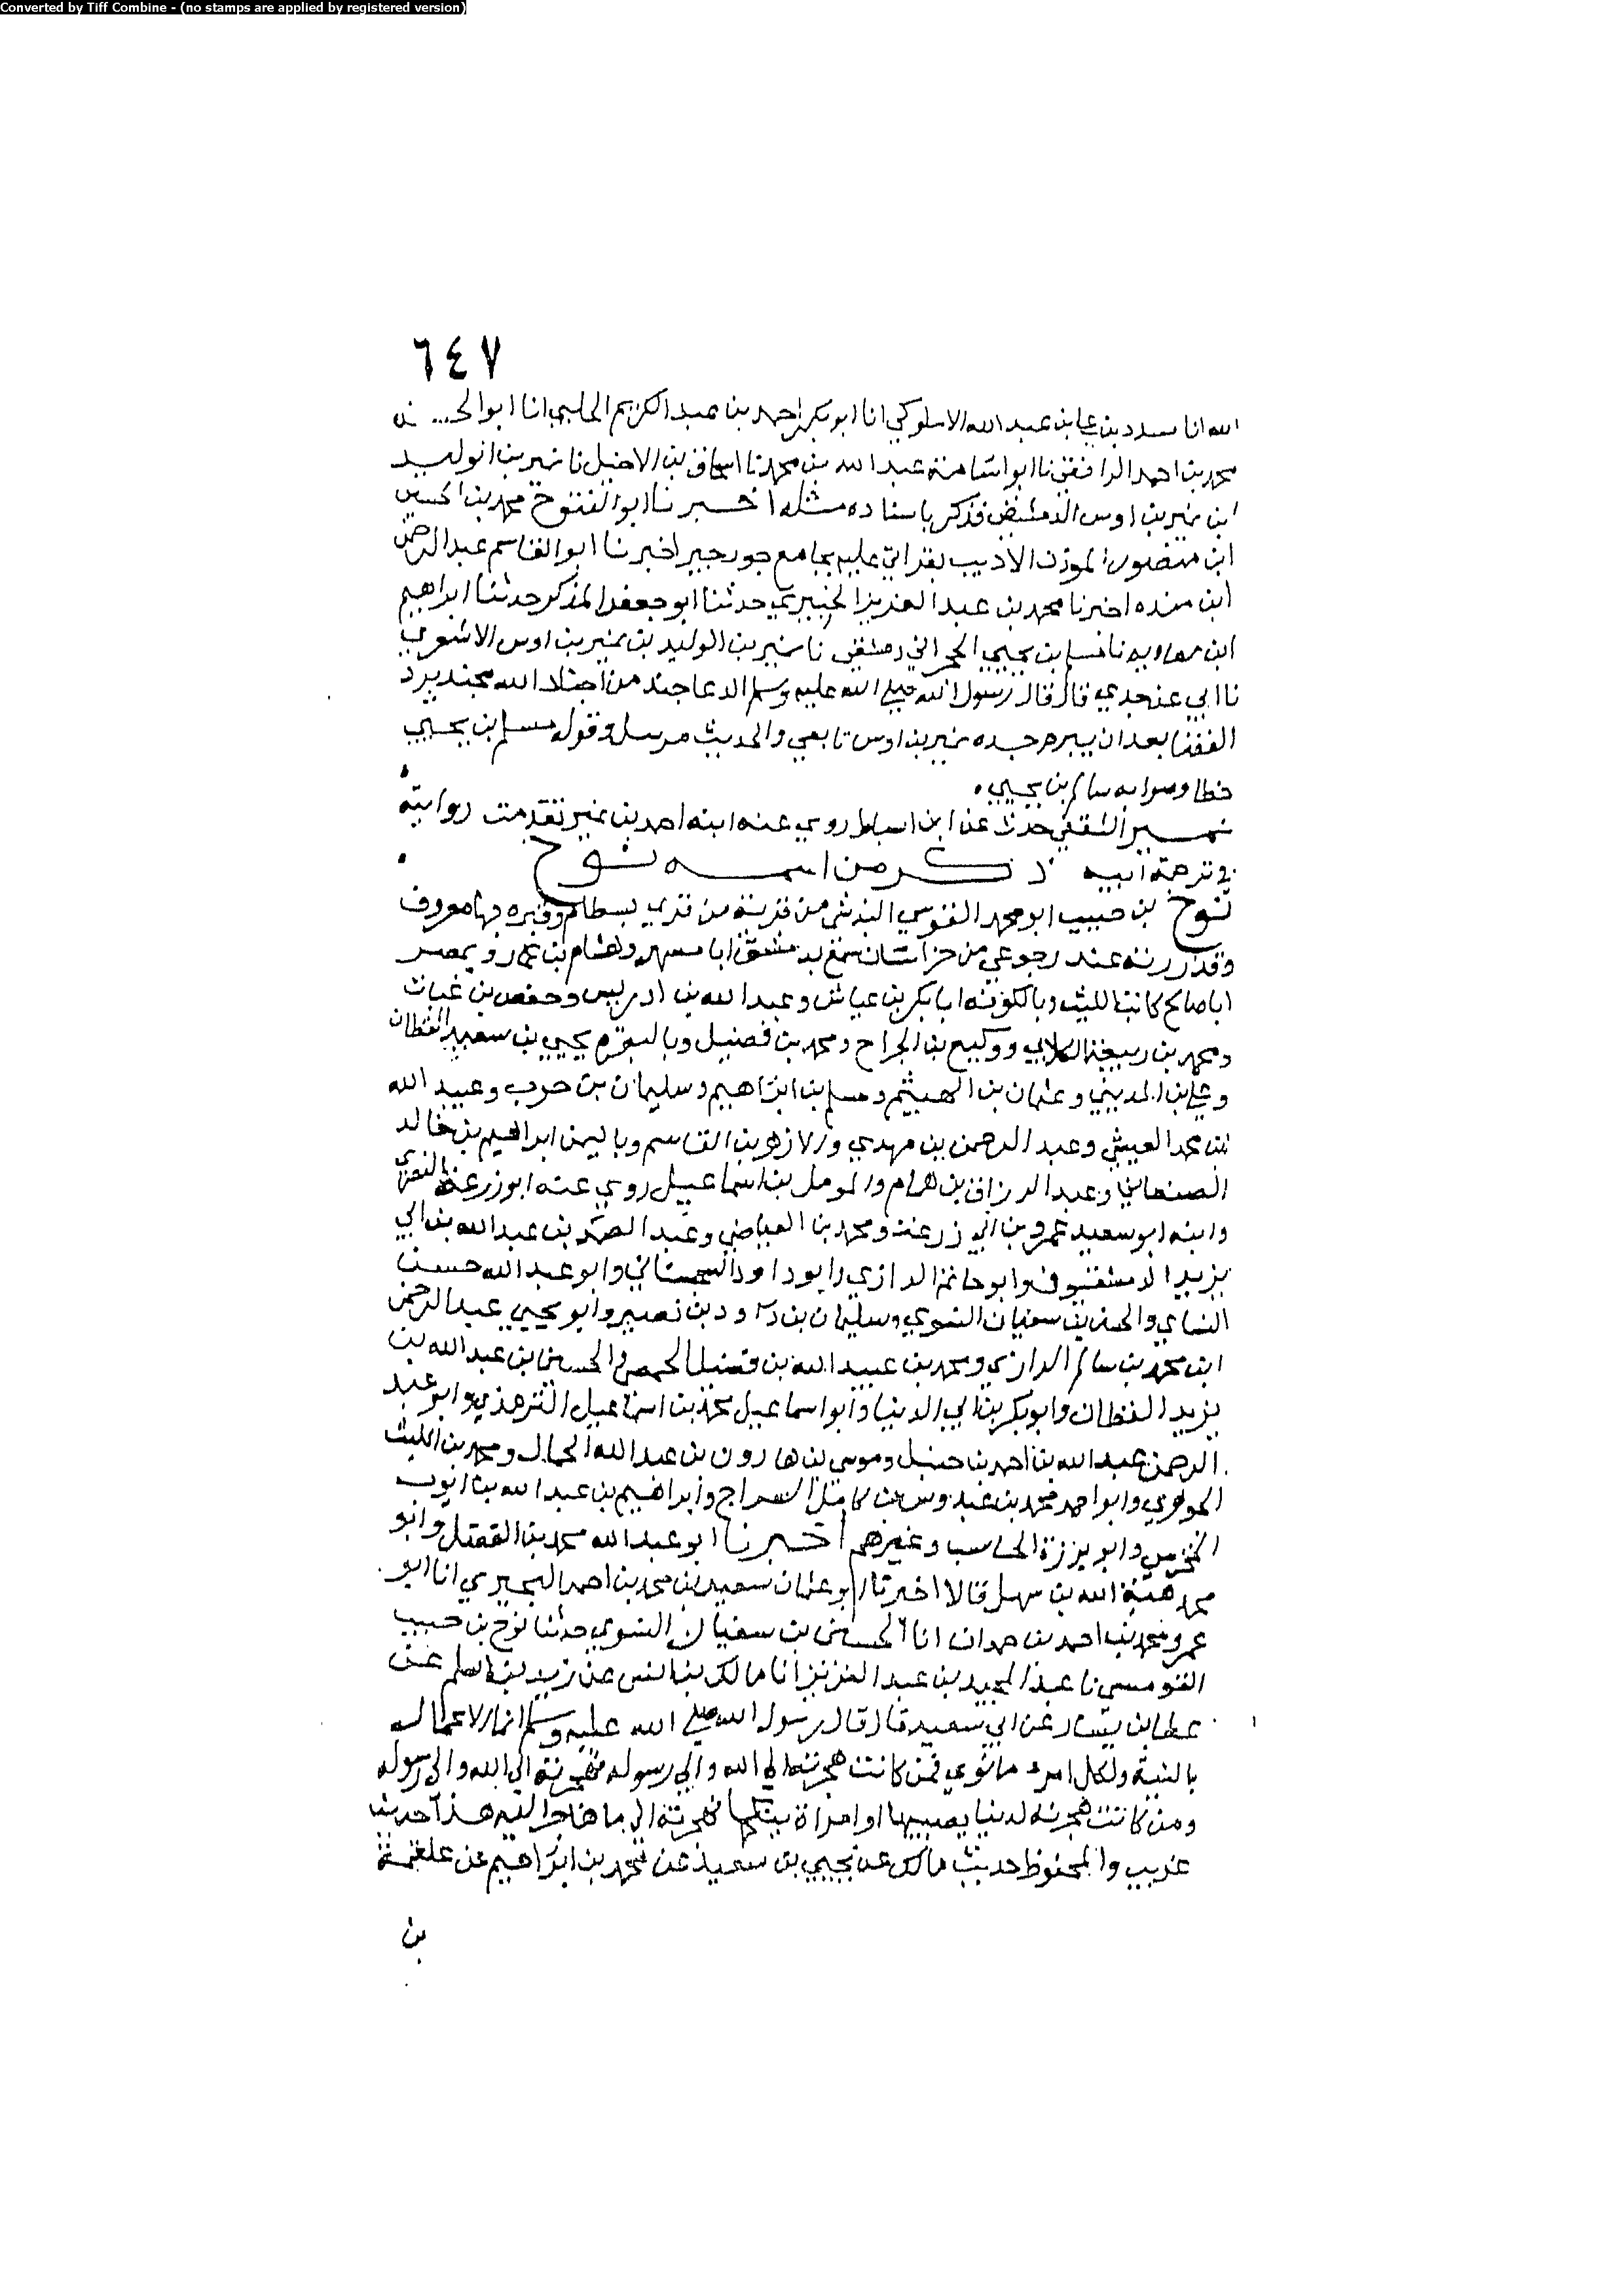 Converted by Tiff Combine - (no stamps are applied by registered version)
٦٤٧
الله انا مسدد بن علي بن عبد الله الاملوكي انا ابو بكر احمد بن عبد الكريم الحلبي انا ابو الحـ
محمد بن احمد الرافقي نا ابو اسامة عبد الله بن محمد نا اسحاق بن الاخيل نا نمير بن الوليد
ابن نمير بن اوس الدمشقي فذكر باسناده مثله اخبرنا ابو الفتوح محمد بن الحسين
ابن منصور الموذن الاديب بقراتي عليه بجامع جورجير اخبرنا ابو القاسم عبد الرحمن
ابن منده اخبرنا محمد بن عبد العزيز حدثنا ابو جعفر المذكر حدثنا ابراهيم
ابن معاويه نا مسلم بن يحيي الحجراني دمشقي نا نمير بن الوليد بن نمير بن اوس الاشعري
نا ابي عن جدي قال قال رسول الله صلي الله عليه وسلم الدعا جند من اجناد الله مجند يرد
القضا بعد ان يبرم جده نمير بن اوس تابعي والحديث مرسل وقوله مسلم بن يحيي
خطا وصوابه سالم بن يحيي
نمير الثقفي حدث عن ابن اسباط روي عنه ابنه احمد بن نمير تقدمت روايته
في ترجمة ابيه ذكر من اسمه نوح
نوح بن حبيب ابو محمد القومسي البذشي من قرية من قري بسطام وقبره بها معروف
وقد زرته عند رجوعي من خراسان سمع بدمشق ابا مسهر وهشام بن عمار وبمصر
ابا صالح كاتب الليث وبالكوفة ابا بكر بن عياش وعبد الله بن ادريس وحفص بن غياث
ومحمد بن ربيعة الكلابي ووكيع بن الجراح ومحمد بن فضيل وبالبصرة يحيي بن سعيد القطان
وعلي بن المديني وعثمان بن الهيثم ومسلم بن ابراهيم وسليمان بن حرب وعبيد الله
بن محمد العيشي وعبد الرحمن بن مهدي والازهر بن القاسم وباليمن ابراهيم بن خالد
الصنعاني وعبد الرزاق بن همام والمومل بن اسماعيل روي عنه ابو زرعة النصري
وابنه ابو سعيد عمرو بن ابي زرعة ومحمد بن الفياض وعبد الصمد بن عبد الله بن ابي
يزيد الدمشقيون وابو حاتم الرازي وابو داود السجستاني وابو عبد الله حسنـ
النساي والحسن بن سفيان النسوي وسليمان بن داود بن نصير وابو يحيي عبد الرحمن
ابن محمد بن سالم الرازي ومحمد بن عبيد الله بن فضيل الحمصي والحسين بن عبد الله بن
يزيد القطان وابو بكر بن ابي الدنيا وابو اسماعيل محمد بن اسماعيل الترمذي وابو عبد
الرحمن عبد الله بن احمد بن حنبل وموسي بن هارون بن عبد الله الحمال ومحمد بن الليث
الجوهري وابو احمد محمد بن عبدوس بن كامل السراج وابراهيم بن عبد الله بن ايوب
المخرمي وابو برزة الحاسب وغيرهم اخبرنا ابو عبد الله محمد بن الفضل وابو
محمد هبة الله بن سهل قالا اخبرنا ابو عثمان سعيد بن محمد بن احمد البحيري انا ابو
عمرو محمد بن احمد بن حمدان انا الحسن بن سفيان النسوي حدثنا نوح بن حبيب
القومسي نا عبد المجيد بن عبد العزيز انا مالك بن انس عن زيد بن اسلم عن
عطا بن يسار عن ابي سعيد قال قال رسول الله صلي الله عليه وسلم انما الاعمال
بالنية ولكل امرء ما نوي فمن كانت هجرته الي الله والي رسوله فهجرته الي الله والي رسوله
ومن كانت هجرته لدنيا يصيبها او امراة ينكحها فهجرته الي ما هاجر اليه هذا حديث
غريب والمحفوظ حديث مالك عن يحيي بن سعيد عن محمد بن ابراهيم عن علقمة
بن